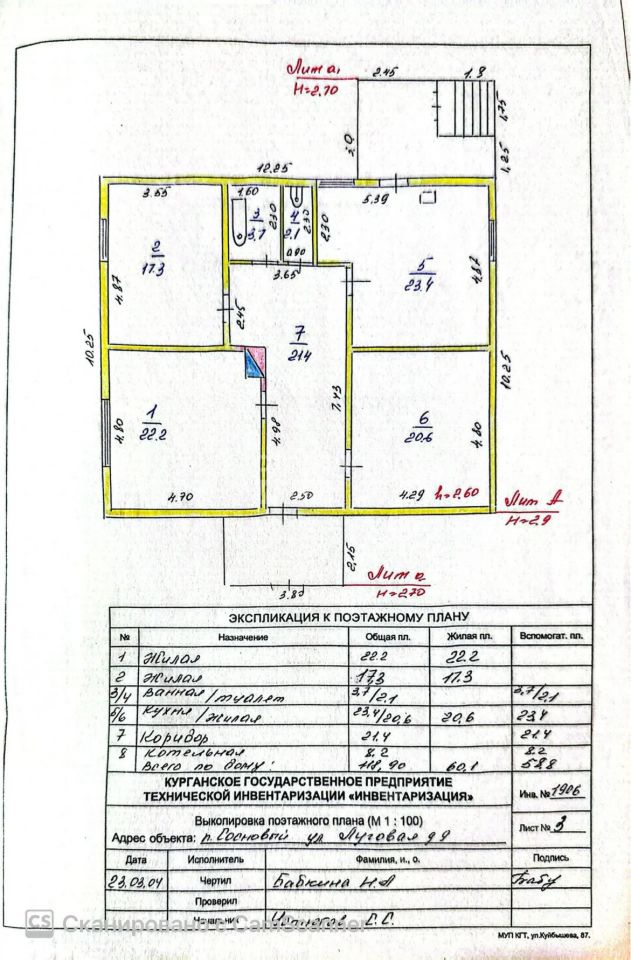 Лит а₁
Н=2.70
2.45
1.8
1.75
1.25
12.25
3.55
1.60
2.30
2.30
2.30
5.39
3
3.7
4
2.1
0.90
3.65
2
17.3
4.87
2.45
7
21.4
5
23.4
4.87
10.25
10.25
1
22.2
4.80
4.98
7.43
6
20.6
4.80
4.70
2.50
4.29
h=2.60
Лит А
Н=2.9
2.15
Лит а
Н=2.70
3.80
ЭКСПЛИКАЦИЯ К ПОЭТАЖНОМУ ПЛАНУ
№ Назначение Общая пл. Жилая пл. Вспомогат. пл.
1 Жилая 22.2 22.2
2 Жилая 17.3 17.3
3/4 Ванная/туалет 3.7/2.1 3.7/2.1
5/6 Кухня/жилая 23.4/20.6 20.6 23.4
7 Коридор 21.4 21.4
8 Котельная 8.2 8.2
Всего по дому: 118,90 60,1 58.8
КУРГАНСКОЕ ГОСУДАРСТВЕННОЕ ПРЕДПРИЯТИЕ
ТЕХНИЧЕСКОЙ ИНВЕНТАРИЗАЦИИ «ИНВЕНТАРИЗАЦИЯ»
Инв. № 1906
Выкопировка поэтажного плана (М 1 : 100)
Адрес объекта: п. Сосновый ул Луговая д 9
Лист № 3
Дата Исполнитель Фамилия, и., о. Подпись
23.03.04 Чертил Бабкина Н.А
Проверил
Начальник С.С.
CS Сканировано с CamScanner
МУП КГТ, ул.Куйбышева, 87.